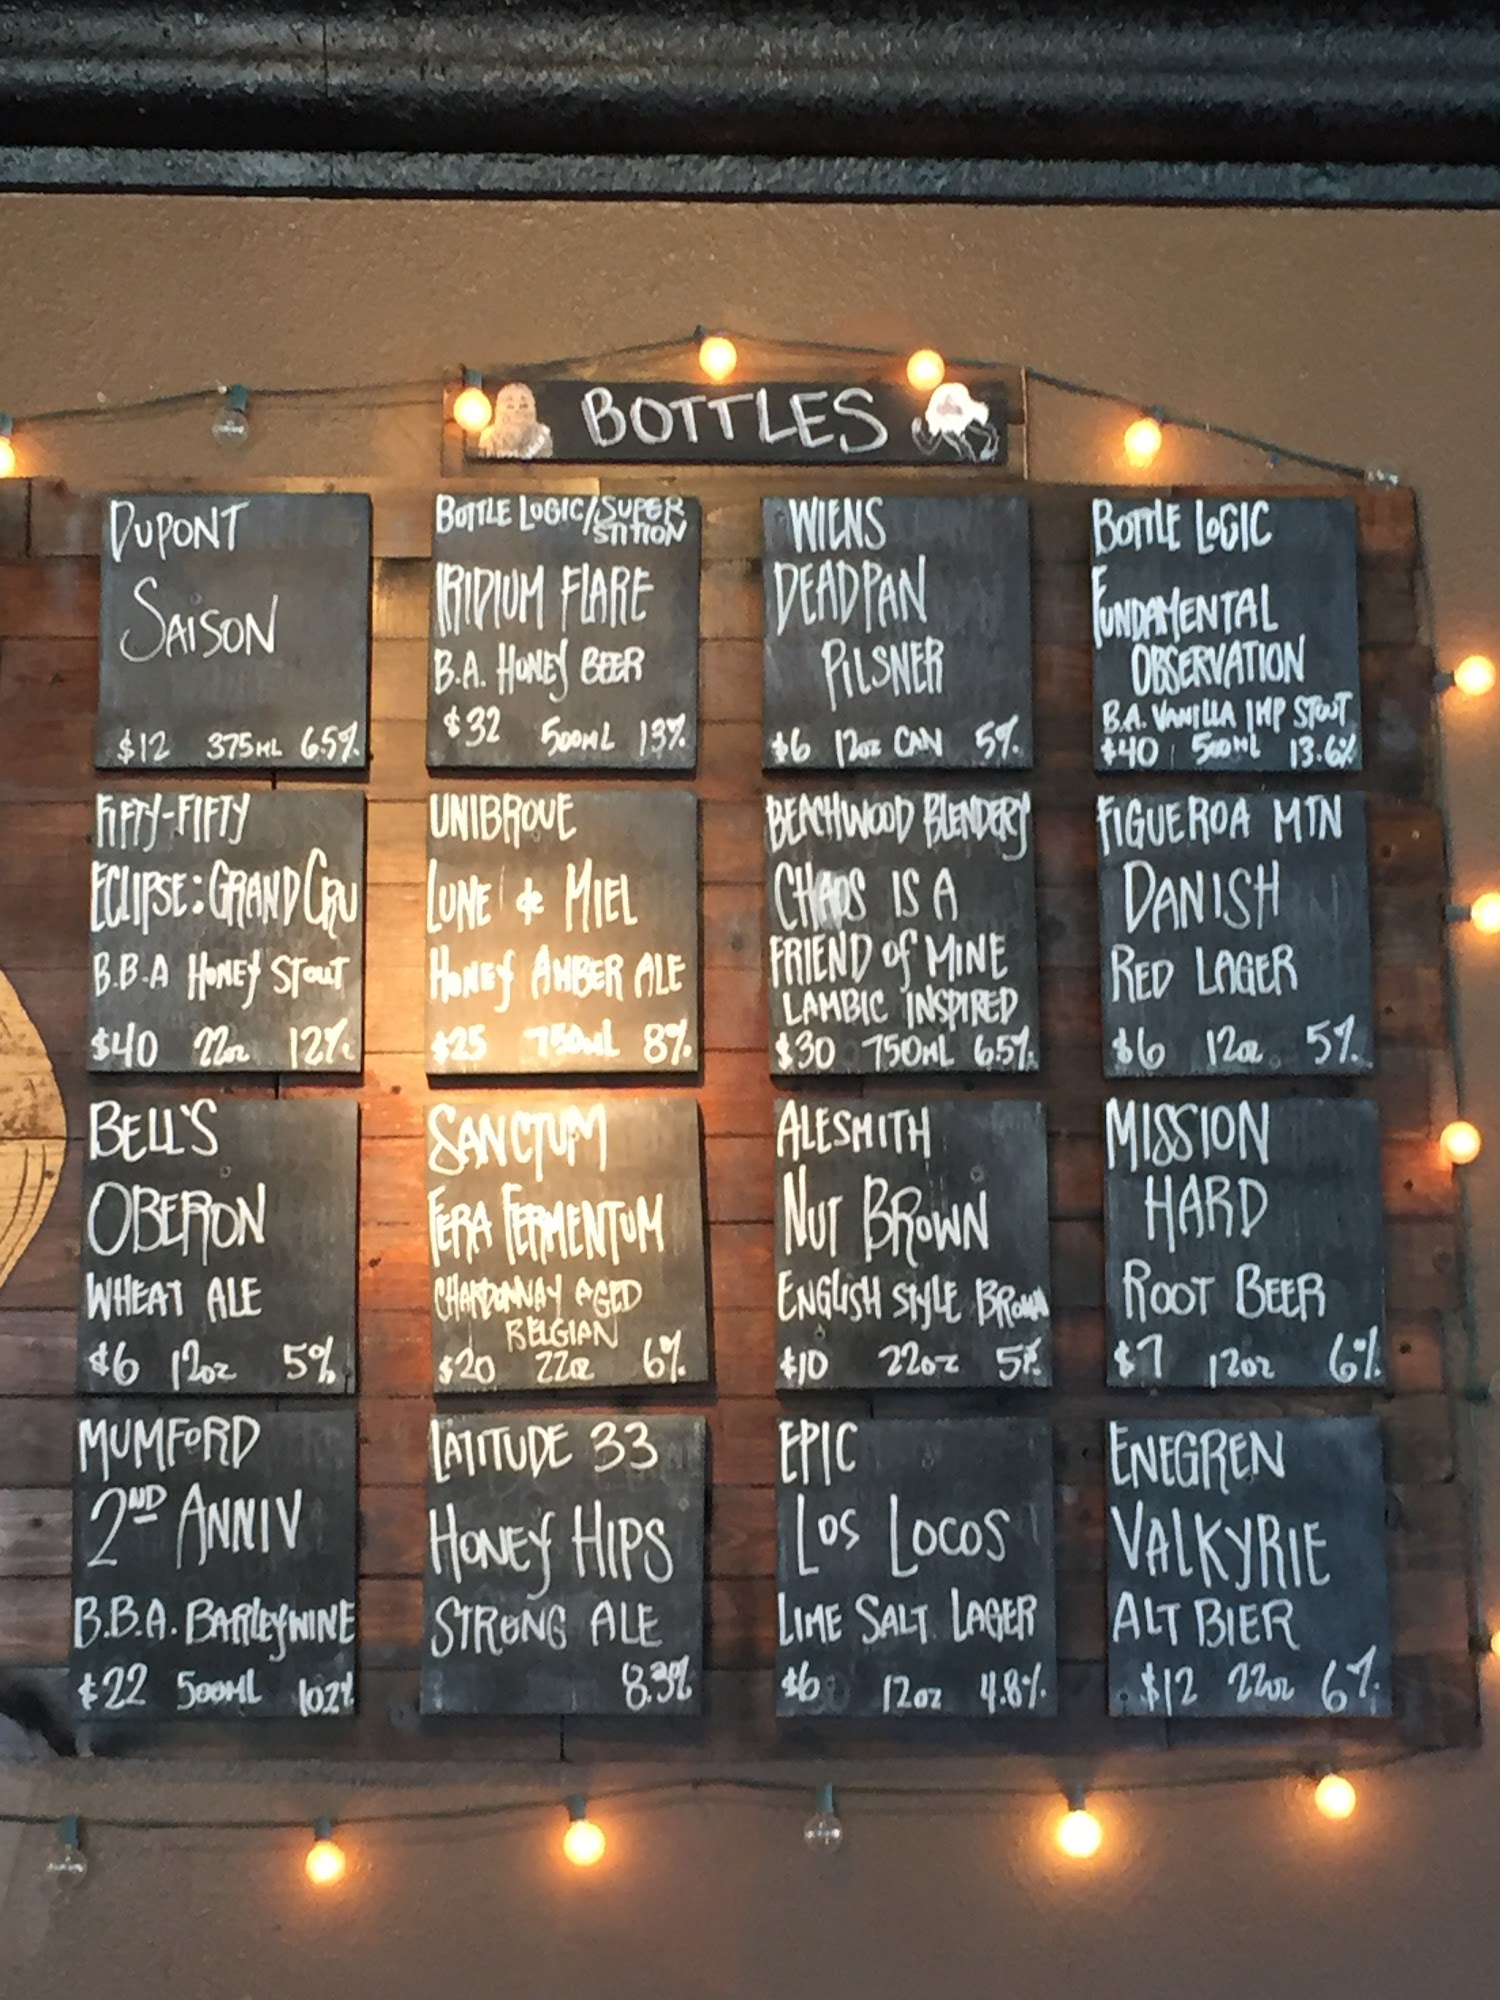 BOTTLES
DUPONT
SAISON
$12 375ML 6.5%
BOTTLE LOGIC/SUPER
STITION
IRIDIUM FLARE
B.A. HONEY BEER
$32 500ML 13%
WIENS
DEADPAN
PILSNER
$6 12oz CAN 5%
BOTTLE LOGIC
FUNDAMENTAL
OBSERVATION
B.A. VANILLA IMP STOUT
$40 500ML 13.6%
FIFTY-FIFTY
ECLIPSE: GRAND CRU
B.B.A HONEY STOUT
$40 22oz 12%
UNIBROUE
LUNE & MIEL
HONEY AMBER ALE
$25 750ML 8%
BEACHWOOD BLENDERY
CHAOS IS A
FRIEND of MINE
LAMBIC INSPIRED
$30 750ML 6.5%
FIGUEROA MTN
DANISH
RED LAGER
$6 12oz 5%
BELL'S
OBERON
WHEAT ALE
$6 12oz 5%
SANCTUM
FERA FERMENTUM
CHARDONNAY AGED
BELGIAN
$20 22oz 6%
ALESMITH
NUT BROWN
ENGLISH STYLE BROWN
$10 22oz 5%
MISSION
HARD
ROOT BEER
$7 12oz 6%
MUMFORD
2ND ANNIV
B.B.A. BARLEYWINE
$22 500ML 10.2%
LATITUDE 33
HONEY HIPS
STRONG ALE
8.3%
EPIC
LOS LOCOS
LIME SALT LAGER
$6 12oz 4.8%
ENEGREN
VALKYRIE
ALT BIER
$12 22oz 6%